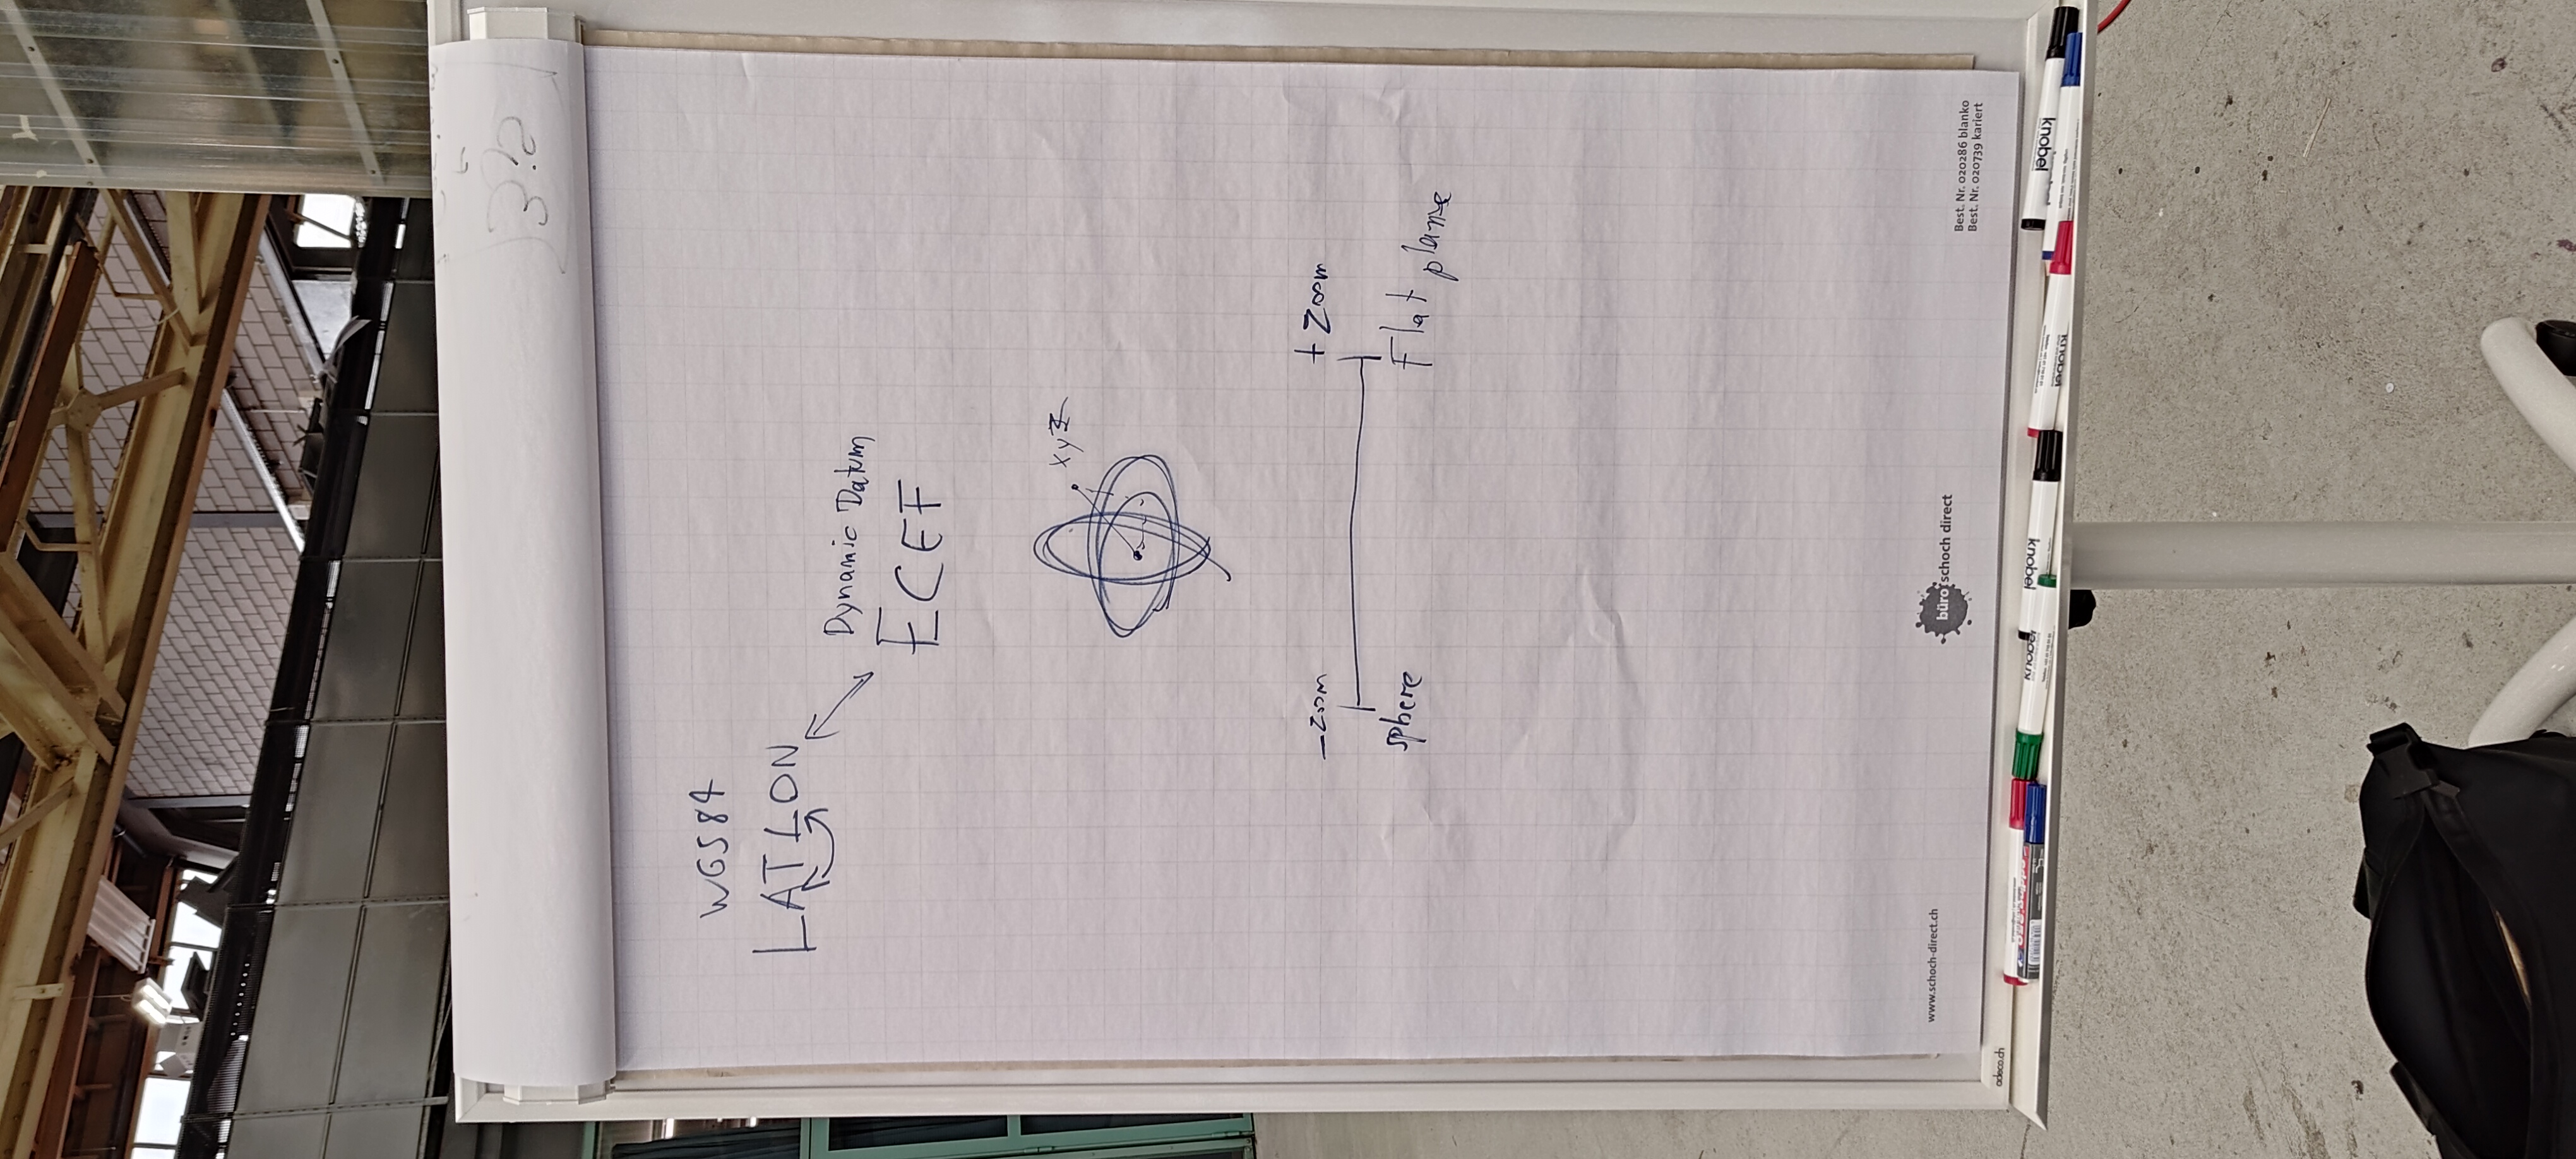 WGS84
LAT LON
Dynamic Datum
ECEF
xyz
- Zoom
+ Zoom
sphere
Flat plane
www.schoch-direct.ch
büro schoch direct
Best. Nr. 020286 blanko
Best. Nr. 020739 kariert
adeco.ch
knobel
knobel
knobel
knobel